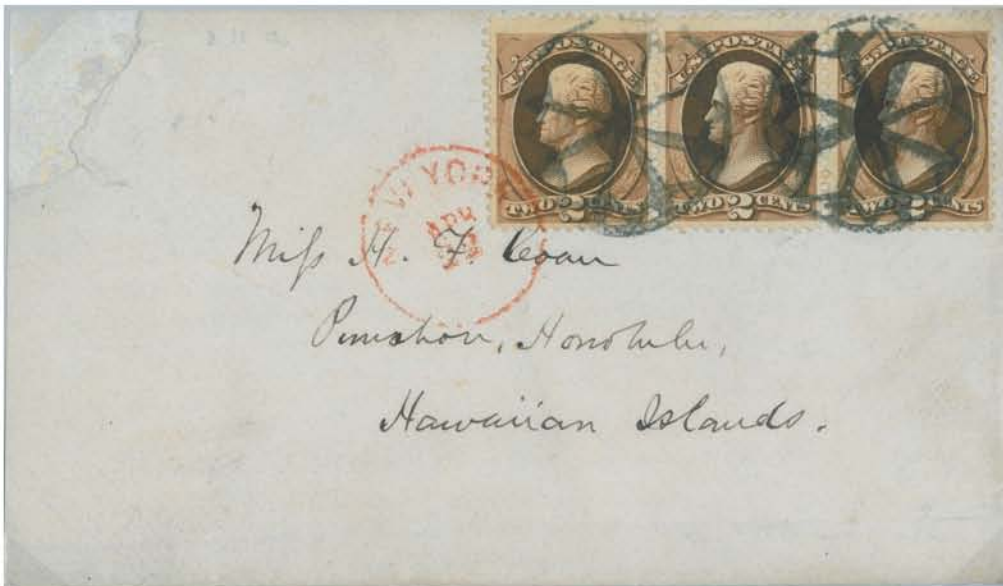 U.S. POSTAGE U.S. POSTAGE U.S. POSTAGE
TWO 2 CENTS TWO 2 CENTS TWO 2 CENTS
NEW YORK
APR
Miss H. F. Coan
Punahou, Honolulu,
Hawaiian Islands.